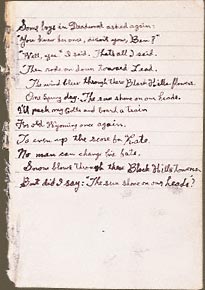 Some boys in Deadwood asked again:
"You knew her once, didn't you, Ben?"
"Well, yes" I said. That's all I said.
Then rode on down toward Lead.
The wind blew through these Black Hills flowers.
One Spring day. The sun shone on our heads.
I'll pack my and board a train
For old Wyoming once again.
To even up the score for Kate.
No man can change his fate.
Snow blows through these Black Hills flowers.
But did I say: "The sun shone on our heads?"